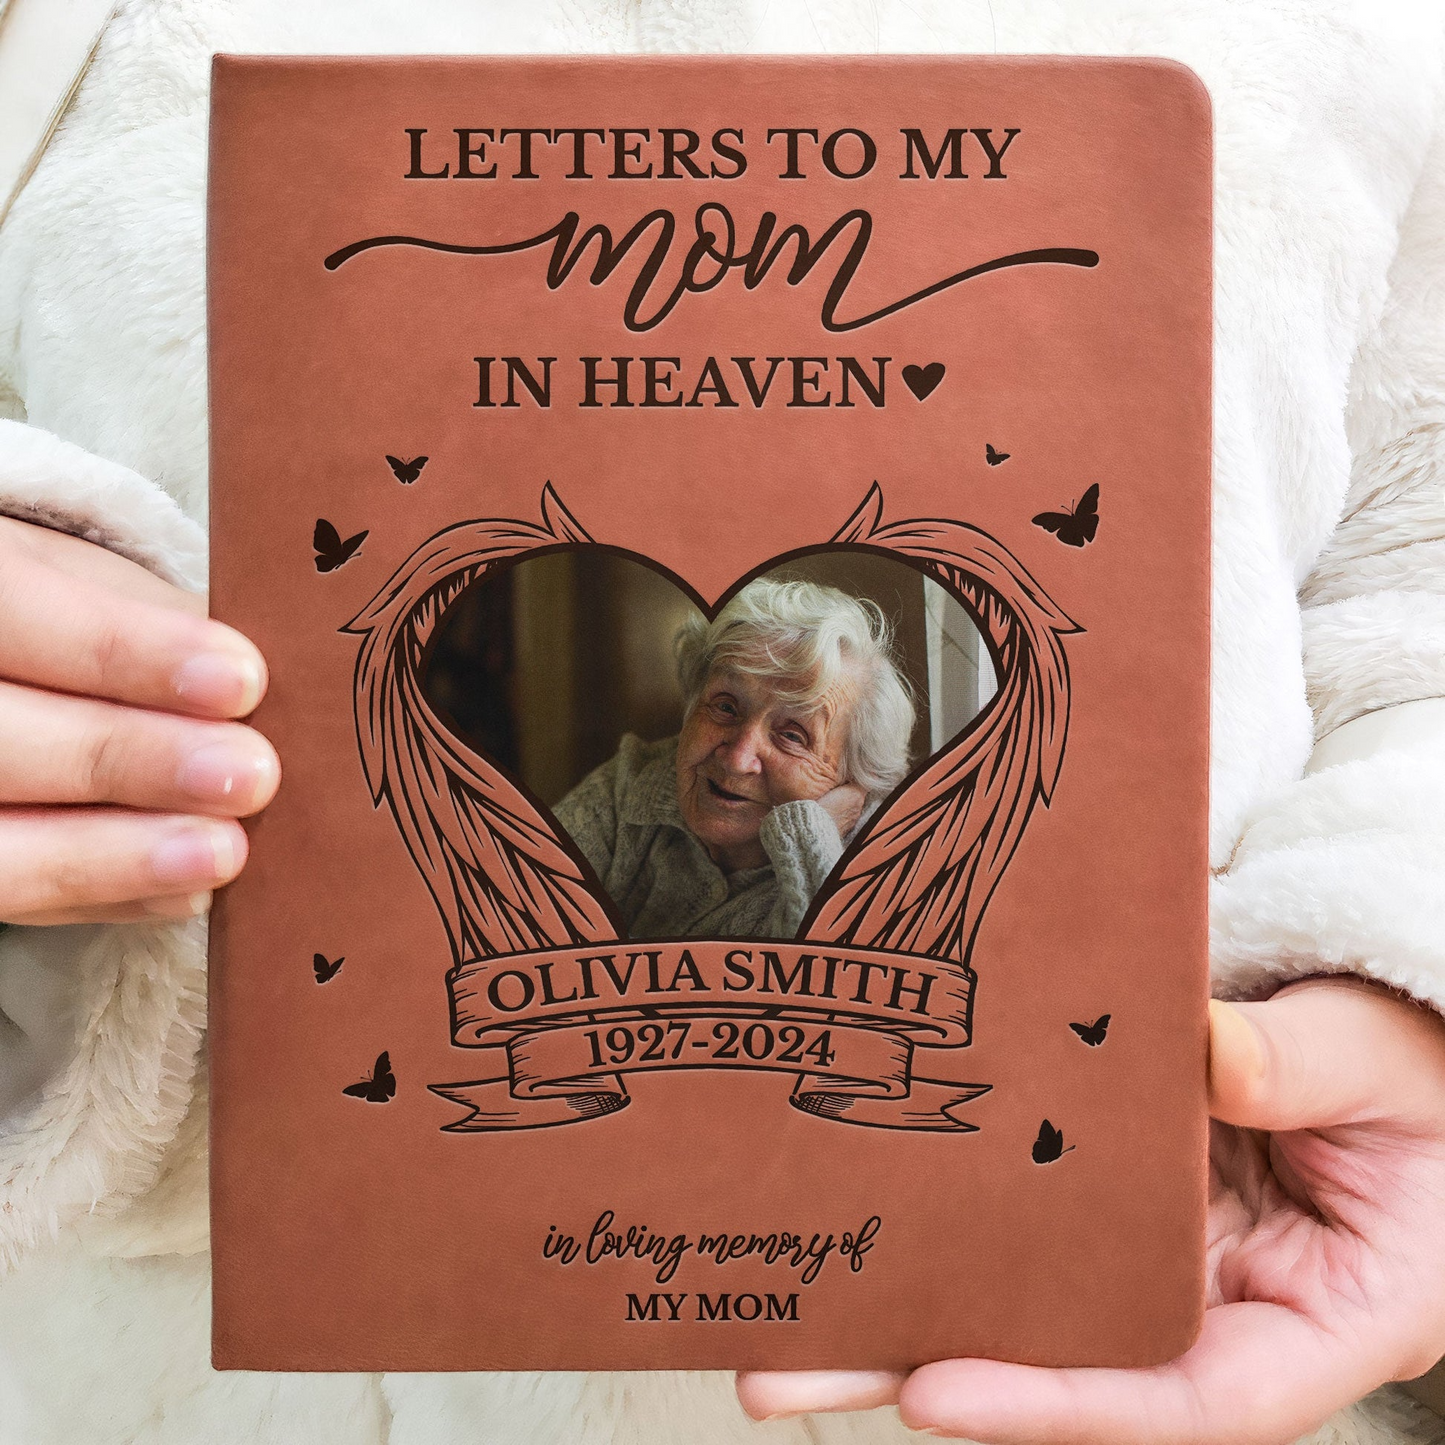 LETTERS TO MY
mom
IN HEAVEN
OLIVIA SMITH
1927-2024
in loving memory of
MY MOM